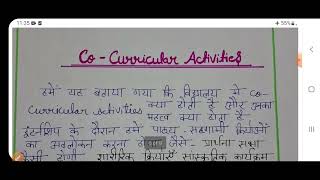 11:35
55%
Co - Curricular Activities
हमें यह बताया गया कि विद्यालय में co-
curricular activities क्या होती है और उनका
महत्व क्या होता है-
इंटर्नशिप के दौरान हमें पाठ्य - सहगामी क्रियाओं
का अवलोकन करना जैसे - प्रार्थना सभा
कैसी होगी शारीरिक क्रियाएँ सांस्कृतिक कार्यक्रम